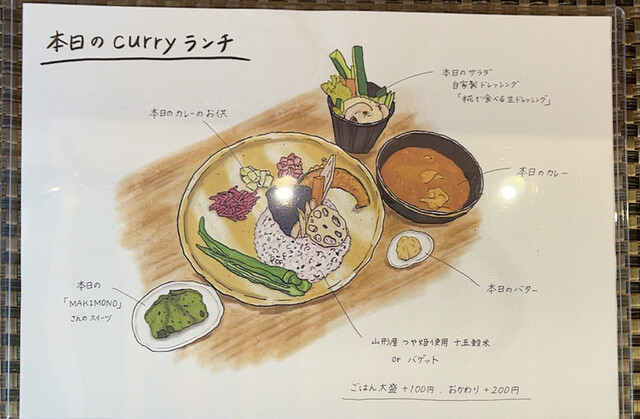 本日のcurryランチ
本日のサラダ
自家製ドレッシング
「糀で食べる生ドレッシング」
本日のカレーのお供
本日のカレー
本日のバター
本日の
「MAKIMONO」
さんのスイーツ
山形産 つや姫使用 十五穀米
or バゲット
ごはん大盛 +100円、おかわり +200円